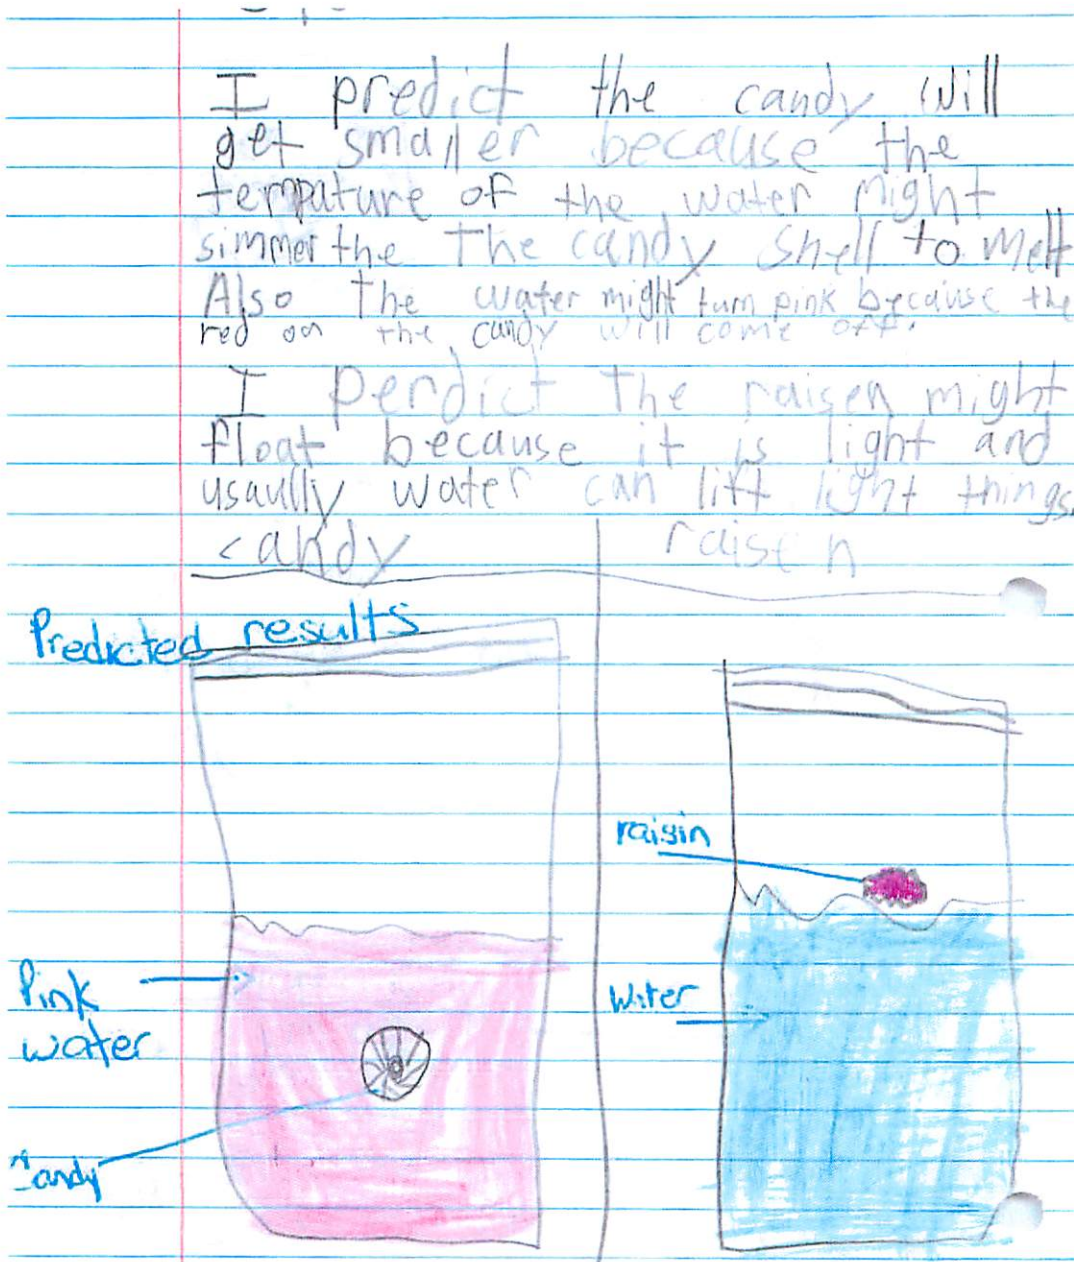 I predict the candy will
get smaller because the
tempature of the water might
simmer the The candy shell to melt
Also the water might turn pink because the
red on the candy will come off.
I Perdict the raisen might
float because it is light and
usaully water can lift light things.
candy raisen
Predicted results
raisin
Pink
water
Water
Candy